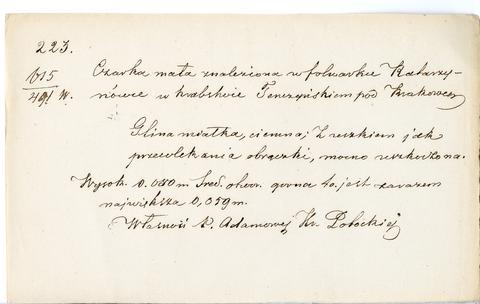 223.
615
491 W. Czarka mała znaleziona w folwarku Katarzy-
nówce w hrabstwie Tenczyńskiem pod Krakowem
Glina miałka, ciemna; z uszkiem jak
przewlekania obrączki, mocno uszkodzona.
Wysok. 0.080 m Śred. otwor. górna to jest zarazem
największa 0,059 m.
Własność P. Adamowej Hr. Potockiéj